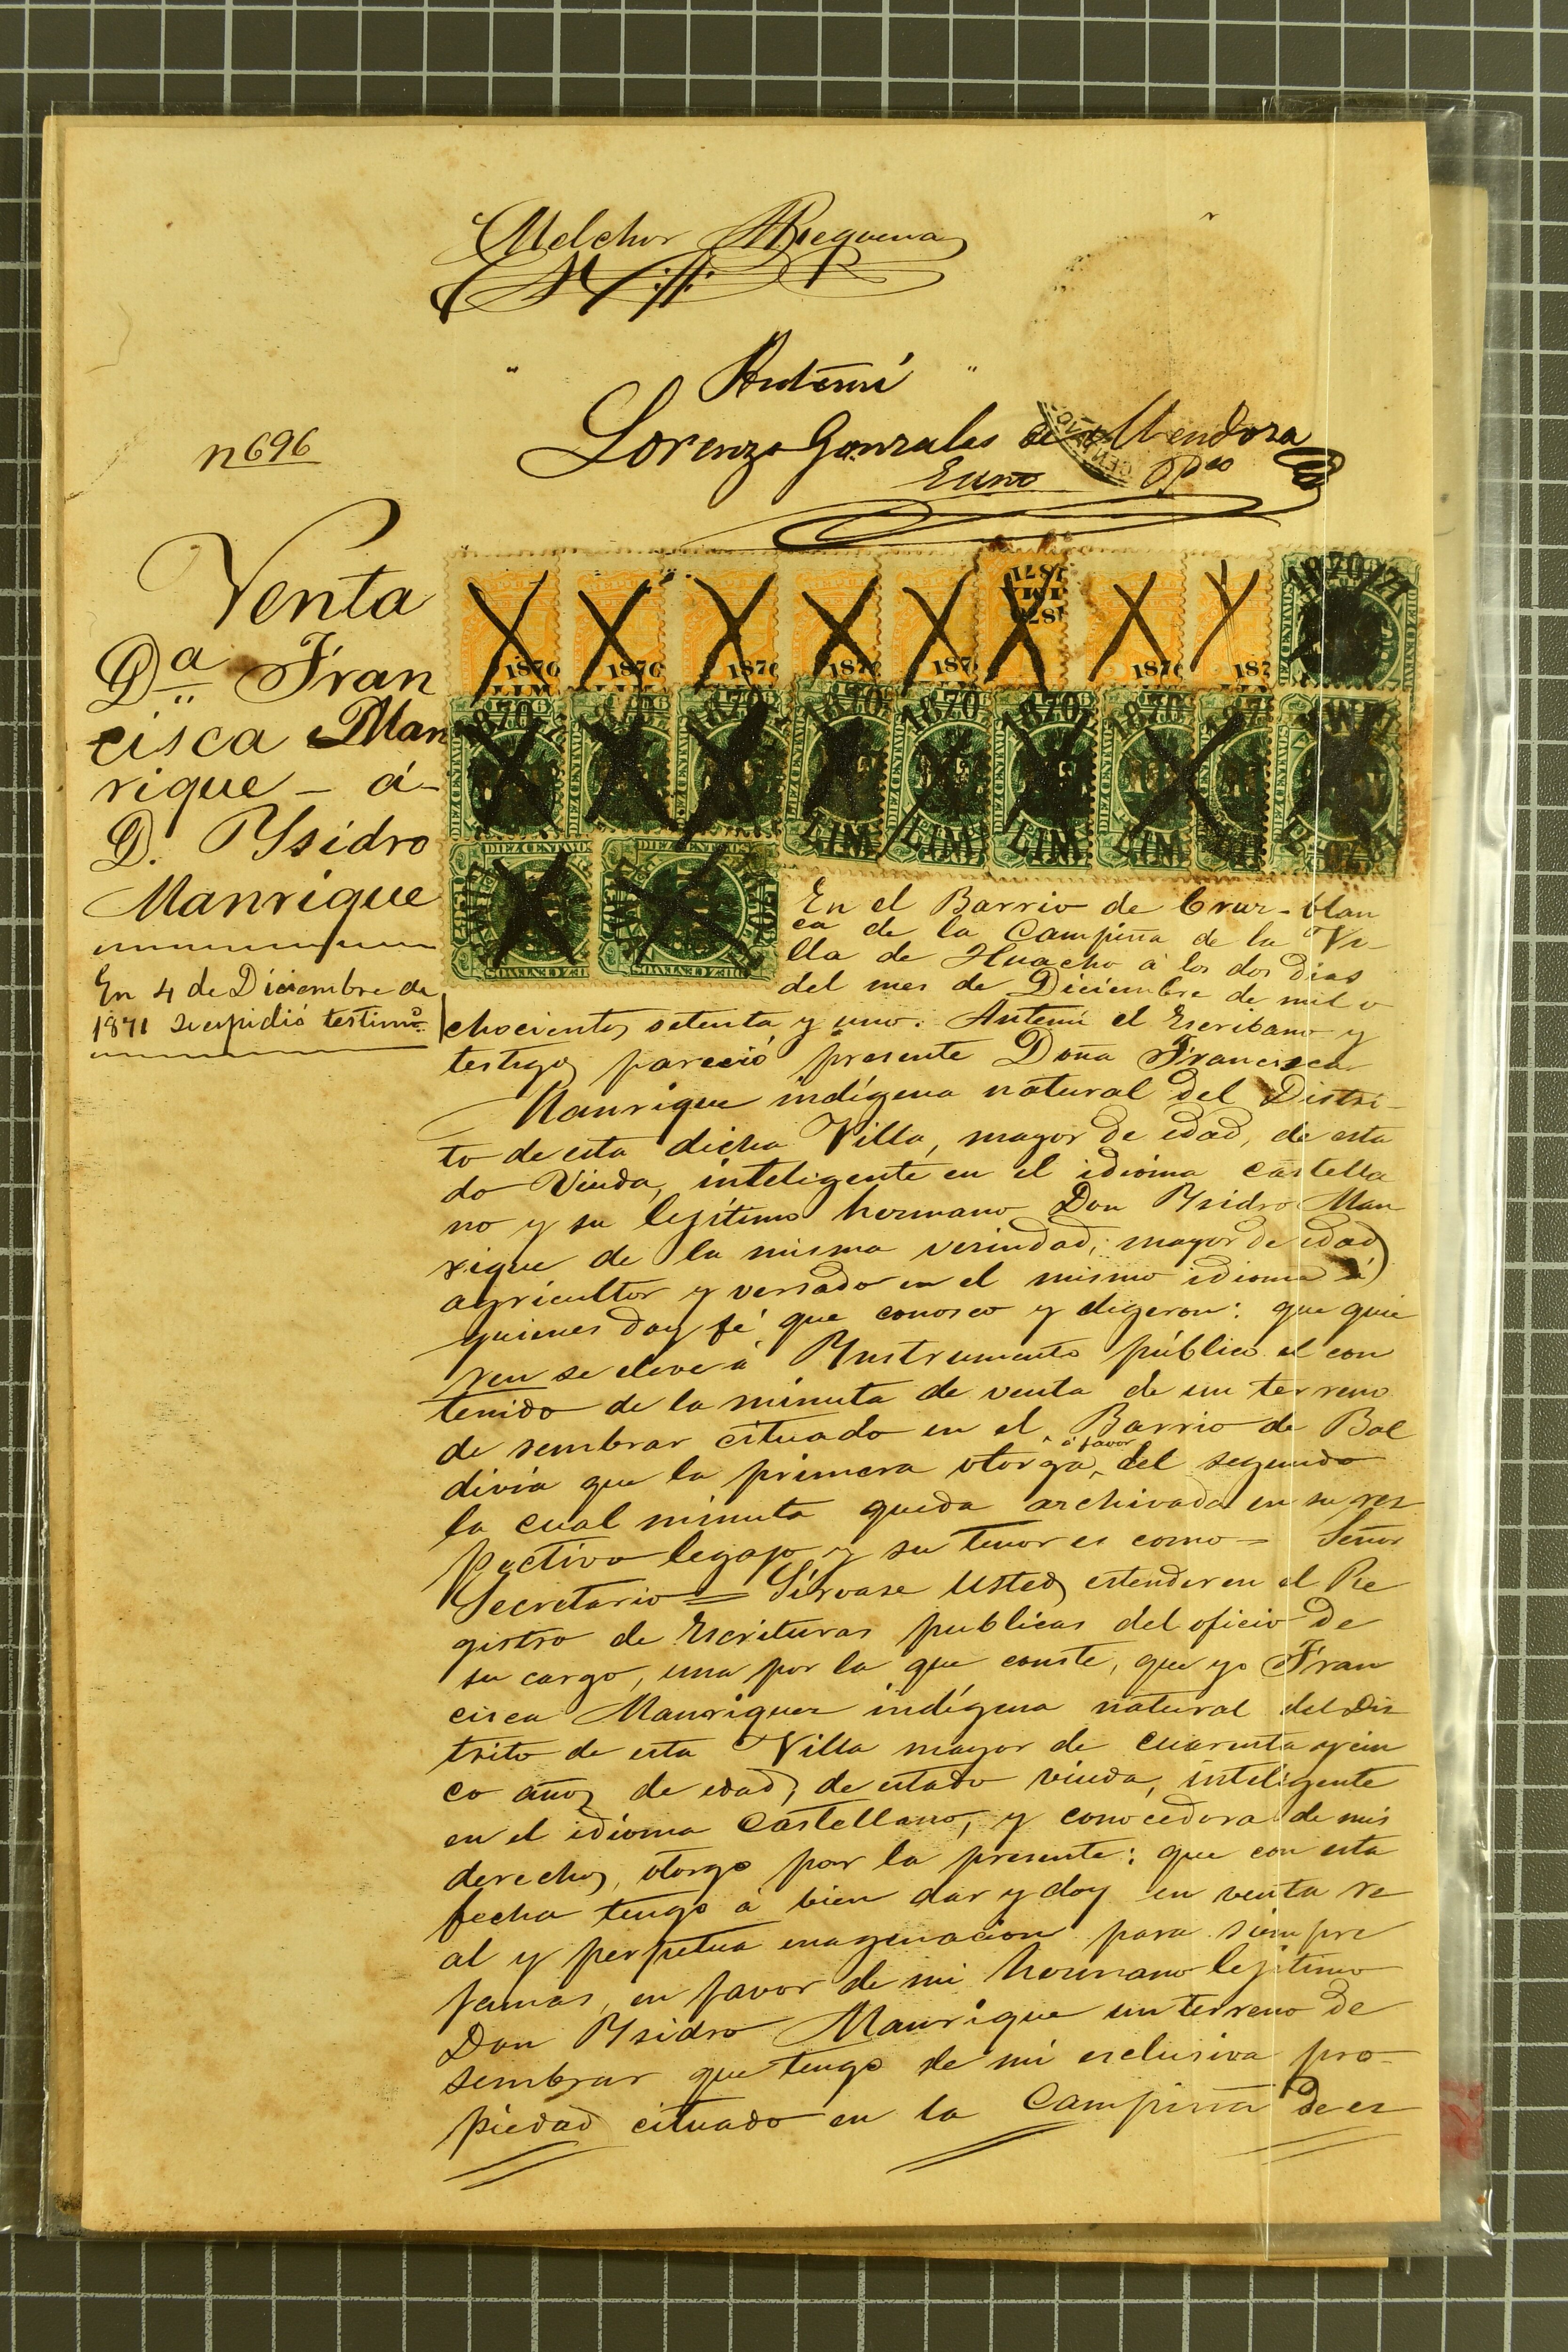 Melchor Requena
Antemi
Lorenzo Gonzales de Mendoza
Esno Pco
n 696
Venta
Da Fran
cisca Man
rique - á
D. Ysidro
Manrique
En 4 de Diciembre de
1871 se espidió testimo
1870 1870 1870 1870 1870 1871 1870 1870 1870 71
1870 1870 1870 1870 1870 1870 1870 1870
DIEZ CENTAVOS
LIMA
En el Barrio de Cruz-blan
ca de la Campiña de la Vi-
lla de Huacho á los dos dias
del mes de Diciembre de mil o
chocientos setenta y uno. Antemi el Escribano y
testigos pareció presente Doña Francisca
Manrique indígena natural del Distri-
to de esta dicha Villa, mayor de edad, de esta
do Viuda, inteligente en el idióma castella
no y su lejítimo hermano Don Ysidro Man
rique de la misma vecindad, mayor de edad
agricultor y versado en el mismo idioma á
quienes doy fé que conosco y digeron: que quie
ren se eleve á Ynstrumento público el con
tenido de la minuta de venta de un terreno
de sembrar cituado en el Barrio de Bal
divia que la primera otorga á favor del segundo
la cual minuta queda archivada en su res
pectivo legajo y su tenor es como = Señor
Secretario = Sírvase Usted estender en el Re
gistro de Escrituras publicas del oficio de
su cargo, una por la que conste, que yo Fran
cisca Manriquez indígena natural del Dis
trito de esta Villa mayor de cuarenta y cin
co años de edad, de estado viuda, inteligente
en el idioma Castellano, y conocedora de mis
derechos, otorgo por la presente: que con esta
fecha tengo á bien dar y doy en venta re
al y perpetua enagenacion para siempre
jamas, en favor de mi hermano lejitimo
Don Ysidro Manrique un terreno de
sembrar que tengo de mi esclusiva pro-
piedad cituado en la Campiña de es